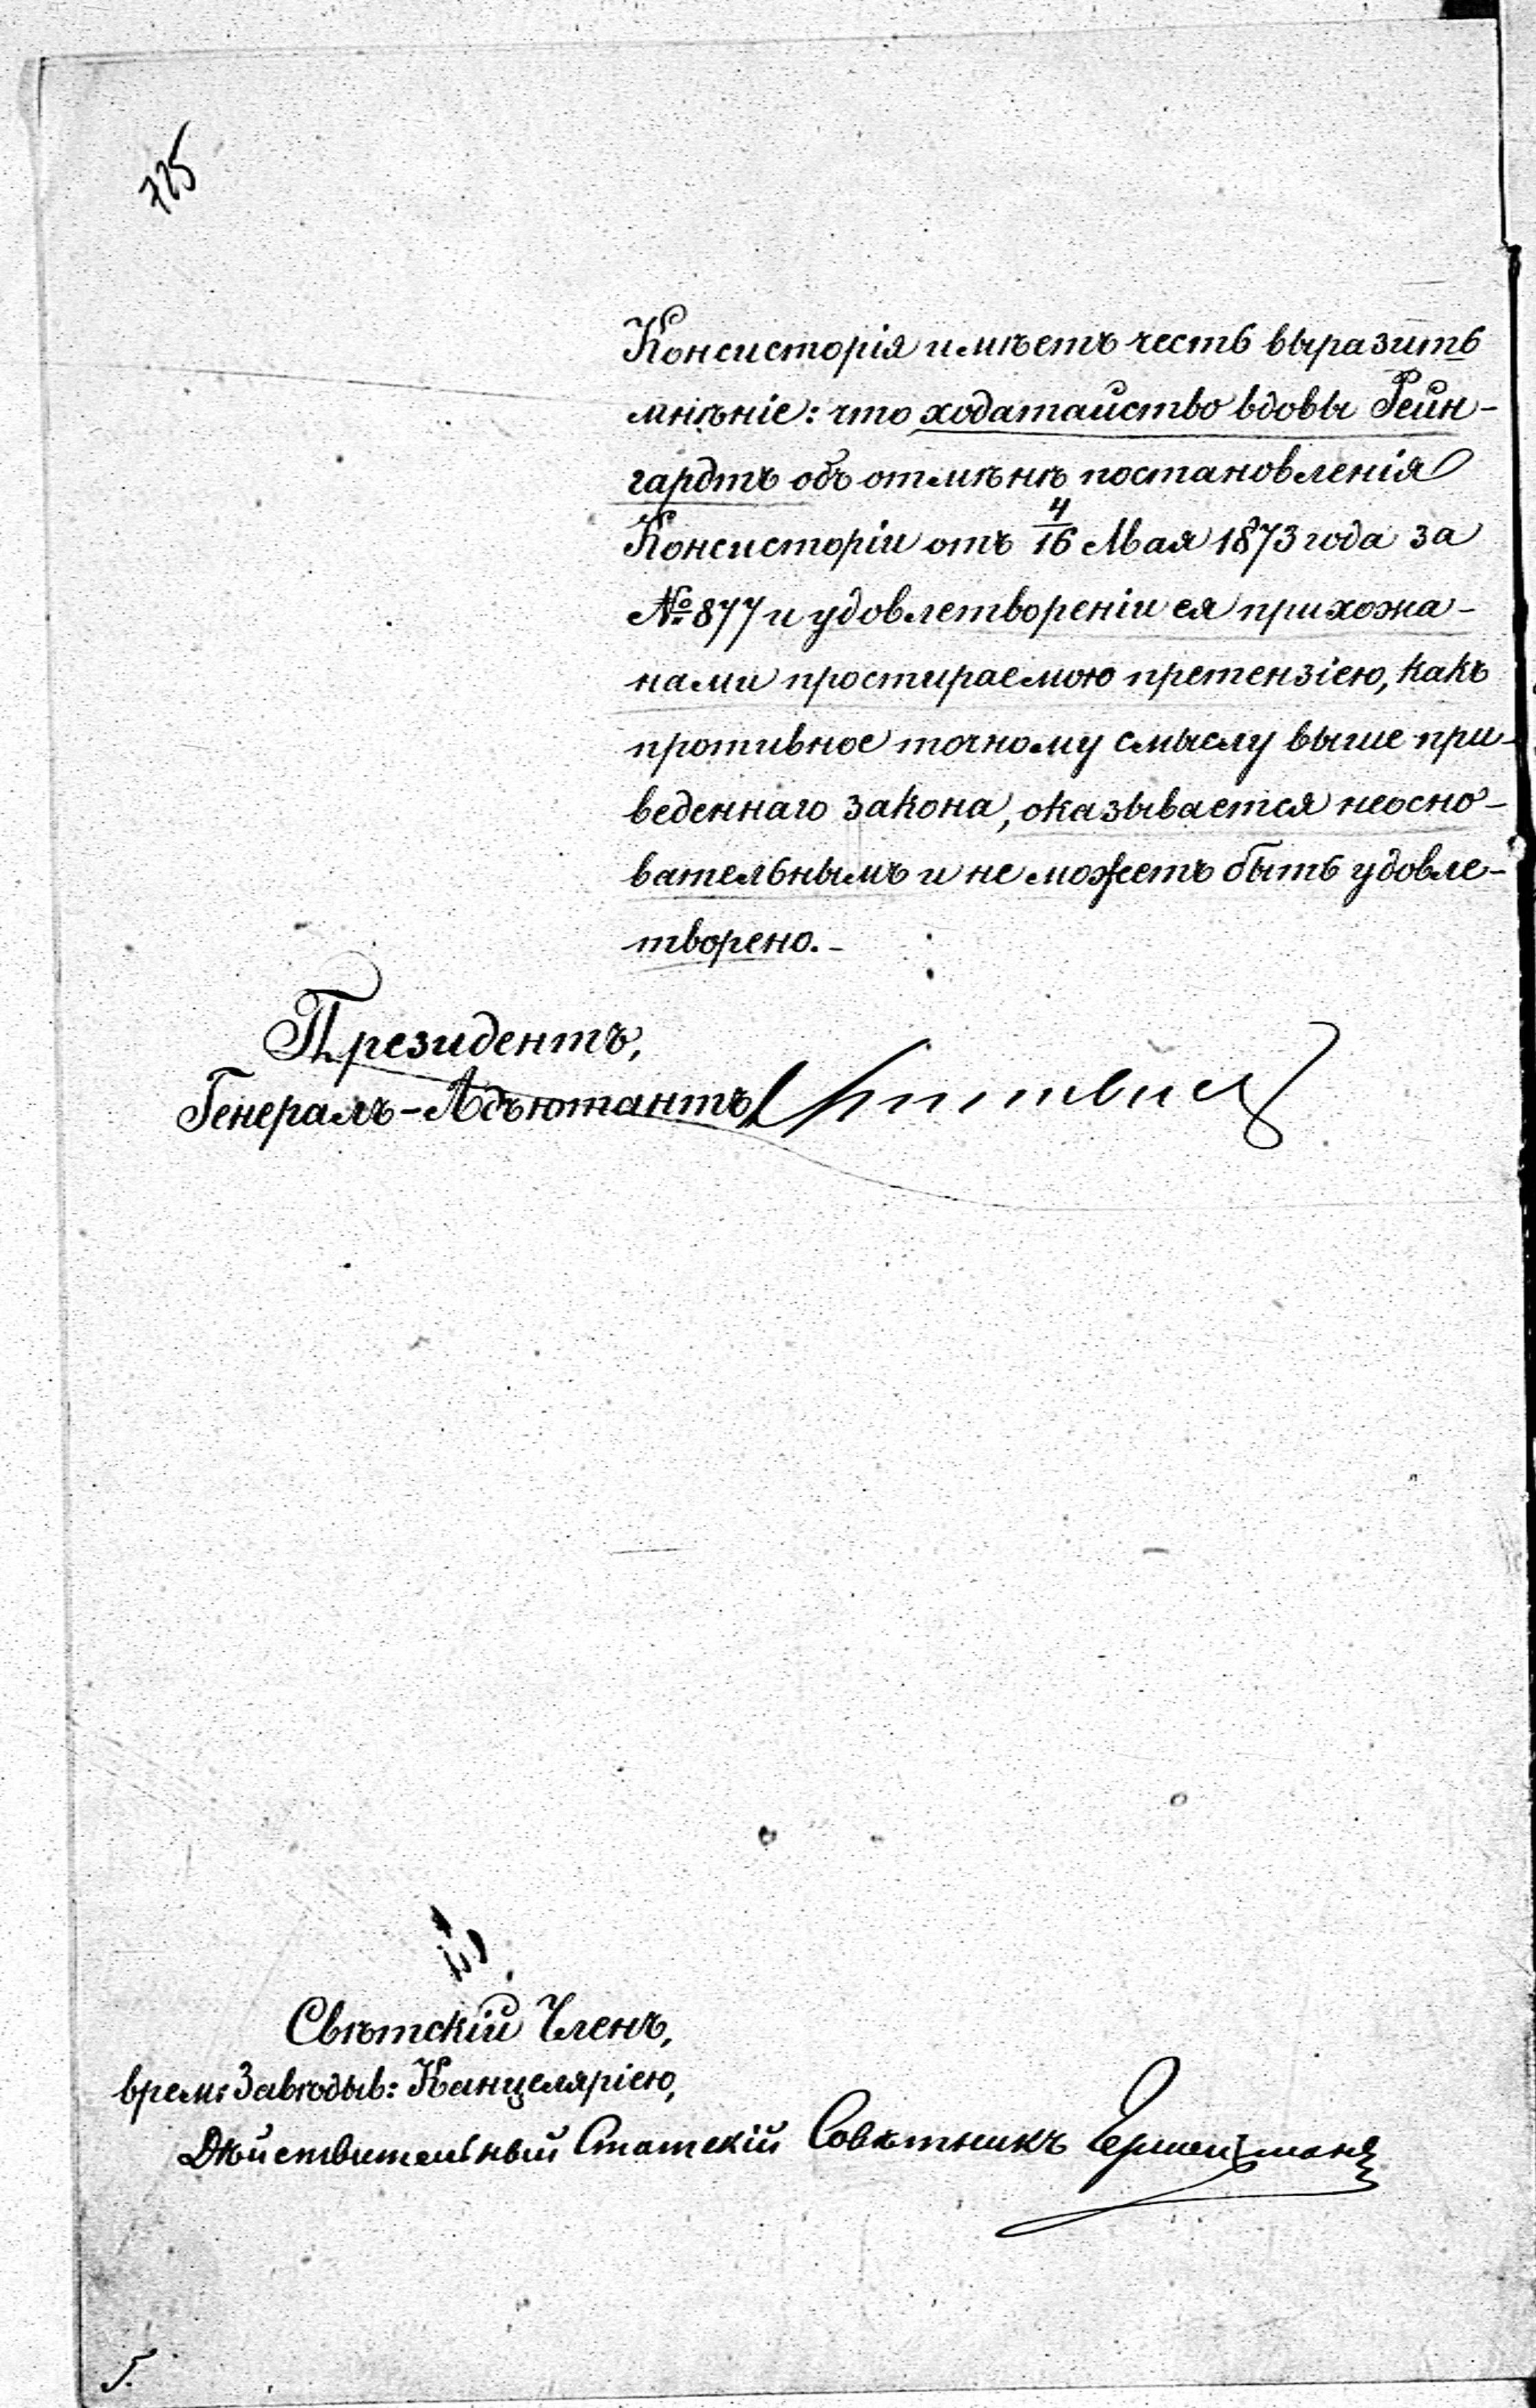 725
Консисторія имѣетъ честь выразить
мнѣніе: что ходатайство вдовы Рейн-
гардтъ объ отмѣнѣ постановленія
Консисторіи отъ 4/16 Мая 1873 года за
№ 877 и удовлетвореніи ея прихожа-
нами простираемою претензіею, какъ
противное точному смыслу выше при-
веденнаго закона, оказывается неосно-
вательнымъ и не можетъ быть удовле-
творено.-
Президентъ,
Генералъ-Адъютантъ
Свѣтскій Членъ,
врем: Завѣдыв: Канцеляріею,
Дѣйствительный Статскій Совѣтникъ
5.